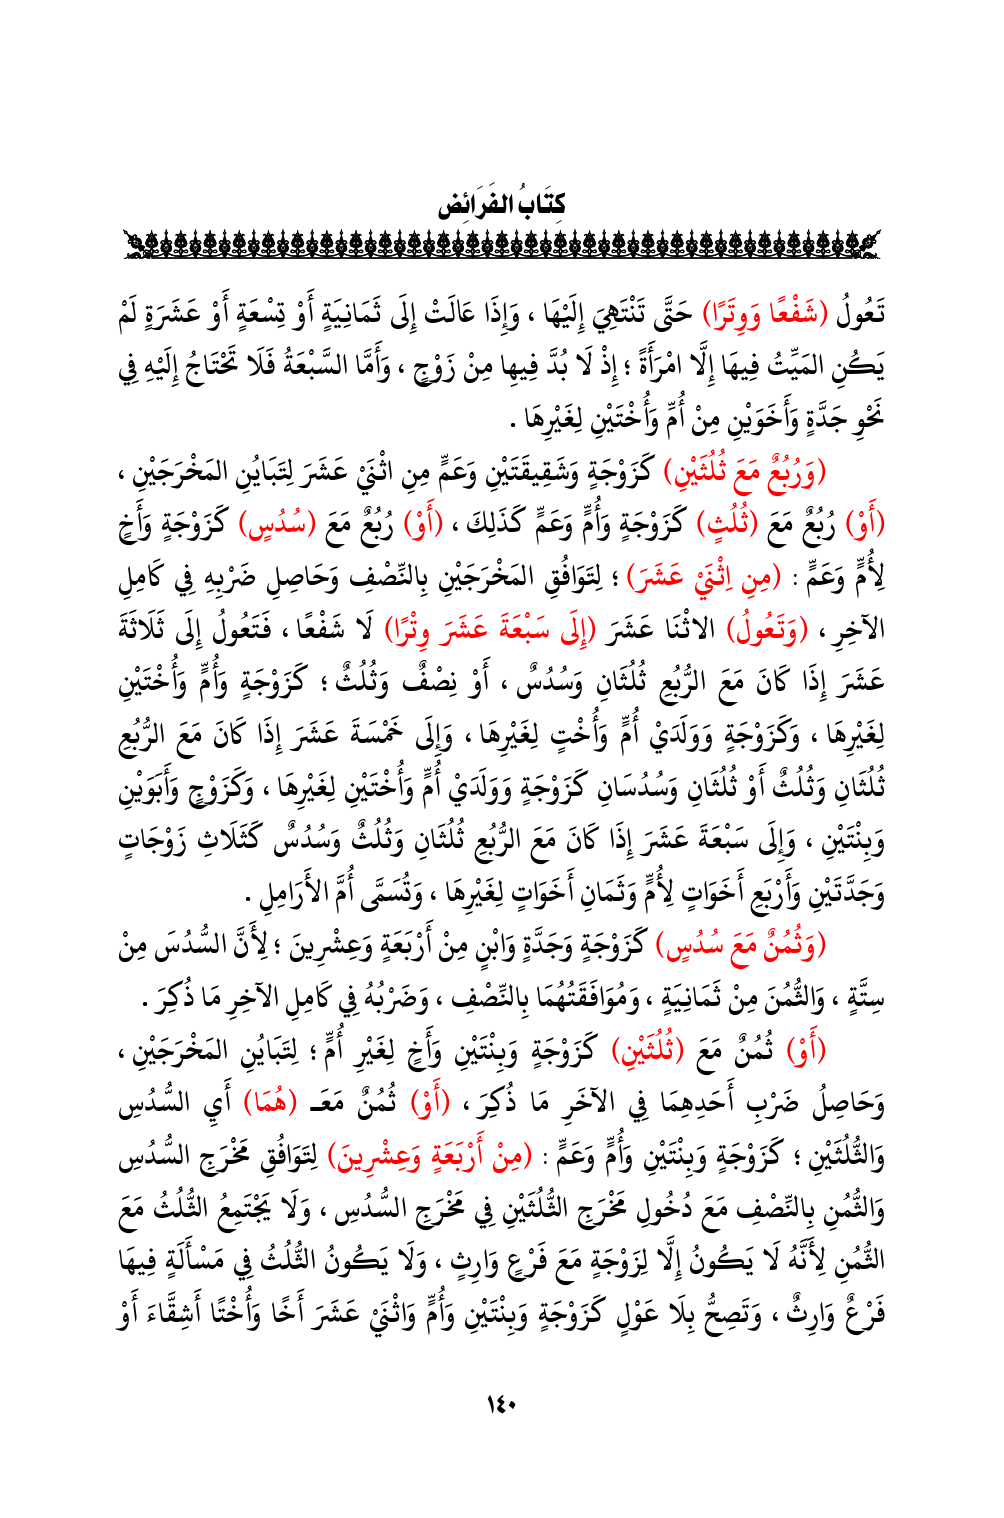 كِتَابُ الفَرَائِض
تَعُولُ (شَفْعًا وَوِتَرًا) حَتَّى تَنْتَهِيَ إِلَيْهَا ، وَإِذَا عَالَتْ إِلَى ثَمَانِيَةٍ أَوْ تِسْعَةٍ أَوْ عَشَرَةٍ لَمْ
يَكُنِ المَيِّتُ فِيهَا إِلَّا امْرَأَةً ؛ إِذْ لَا بُدَّ فِيهِا مِنْ زَوْجٍ ، وَأَمَّا السَّبْعَةُ فَلَا تَحْتَاجُ إِلَيْهِ فِي
نَحْوِ جَدَّةٍ وَأَخَوَيْنِ مِنْ أُمٍّ وَأُخْتَيْنِ لِغَيْرِهَا .
(وَرُبُعٌ مَعَ ثُلُثَيْنِ) كَزَوْجَةٍ وَشَقِيقَتَيْنِ وَعَمٍّ مِنِ اثْنَيْ عَشَرَ لِتَبَايُنِ المَخْرَجَيْنِ ،
(أَوْ) رُبُعٌ مَعَ (ثُلُثٍ) كَزَوْجَةٍ وَأُمٍّ وَعَمٍّ كَذَلِكَ ، (أَوْ) رُبُعٌ مَعَ (سُدُسٍ) كَزَوْجَةٍ وَأَخٍ
لِأُمٍّ وَعَمٍّ : (مِنِ اِثْنَيْ عَشَرَ) ؛ لِتَوَافُقِ المَخْرَجَيْنِ بِالنِّصْفِ وَحَاصِلِ ضَرْبِهِ فِي كَامِلِ
الآخِرِ ، (وَتَعُولُ) الاثْنَا عَشَرَ (إِلَى سَبْعَةَ عَشَرَ وِتْرًا) لَا شَفْعًا ، فَتَعُولُ إِلَى ثَلَاثَةَ
عَشَرَ إِذَا كَانَ مَعَ الرُّبُعِ ثُلُثَانِ وَسُدُسٌ ، أَوْ نِصْفٌ وَثُلُثٌ ؛ كَزَوْجَةٍ وَأُمٍّ وَأُخْتَيْنِ
لِغَيْرِهَا ، وَكَزَوْجَةٍ وَوَلَدَيْ أُمٍّ وَأُخْتٍ لِغَيْرِهَا ، وَإِلَى خَمْسَةَ عَشَرَ إِذَا كَانَ مَعَ الرُّبُعِ
ثُلُثَانِ وَثُلُثٌ أَوْ ثُلُثَانِ وَسُدُسَانِ كَزَوْجَةٍ وَوَلَدَيْ أُمٍّ وَأُخْتَيْنِ لِغَيْرِهَا ، وَكَزَوْجٍ وَأَبَوَيْنِ
وَبِنْتَيْنِ ، وَإِلَى سَبْعَةَ عَشَرَ إِذَا كَانَ مَعَ الرُّبُعِ ثُلُثَانِ وَثُلُثٌ وَسُدُسٌ كَثَلَاثِ زَوْجَاتٍ
وَجَدَّتَيْنِ وَأَرْبَعِ أَخَوَاتٍ لِأُمٍّ وَثَمَانِ أَخَوَاتٍ لِغَيْرِهَا ، وَتُسَمَّى أُمَّ الأَرَامِلِ .
(وَثُمُنٌ مَعَ سُدُسٍ) كَزَوْجَةٍ وَجَدَّةٍ وَابْنٍ مِنْ أَرْبَعَةٍ وَعِشْرِينَ ؛ لِأَنَّ السُّدُسَ مِنْ
سِتَّةٍ ، وَالثُّمُنَ مِنْ ثَمَانِيَةٍ ، وَمُوَافَقَتُهُمَا بِالنِّصْفِ ، وَضَرْبُهُ فِي كَامِلِ الآخِرِ مَا ذُكِرَ .
(أَوْ) ثُمُنٌ مَعَ (ثُلُثَيْنِ) كَزَوْجَةٍ وَبِنْتَيْنِ وَأَخٍ لِغَيْرِ أُمٍّ ؛ لِتَبَايُنِ المَخْرَجَيْنِ ،
وَحَاصِلُ ضَرْبِ أَحَدِهِمَا فِي الآخَرِ مَا ذُكِرَ ، (أَوْ) ثُمُنٌ مَعَـ (هُمَا) أَيِ السُّدُسِ
وَالثُّلُثَيْنِ ؛ كَزَوْجَةٍ وَبِنْتَيْنِ وَأُمٍّ وَعَمٍّ : (مِنْ أَرْبَعَةٍ وَعِشْرِينَ) لِتَوَافُقِ مَخْرَجِ السُّدُسِ
وَالثُّمُنِ بِالنِّصْفِ مَعَ دُخُولِ مَخْرَجِ الثُّلُثَيْنِ فِي مَخْرَجِ السُّدُسِ ، وَلَا يَجْتَمِعُ الثُّلُثُ مَعَ
الثُّمُنِ لِأَنَّهُ لَا يَكُونُ إِلَّا لِزَوْجَةٍ مَعَ فَرْعٍ وَارِثٍ ، وَلَا يَكُونُ الثُّلُثُ فِي مَسْأَلَةٍ فِيهَا
فَرْعٌ وَارِثٌ ، وَتَصِحُّ بِلَا عَوْلٍ كَزَوْجَةٍ وَبِنْتَيْنِ وَأُمٍّ وَاثْنَيْ عَشَرَ أَخًا وَأُخْتًا أَشِقَّاءَ أَوْ
١٤٠